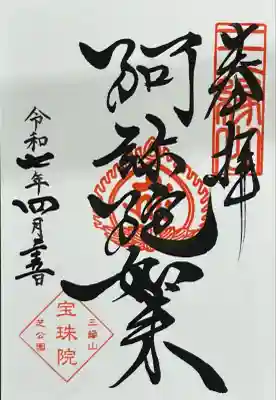 奉拝
阿弥陀如来
令和七年四月
三縁山
宝珠院
芝公園